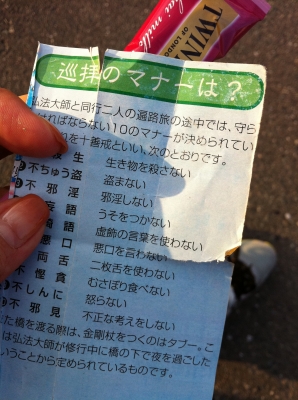 TWIN
OF LONDON
hai milk
巡拝のマナーは？
弘法大師と同行二人の遍路旅の途中では、守ら
ければならない10のマナーが決められてい
を十善戒といい、次のとおりです。
殺生 生き物を殺さない
不ちゅう盗 盗まない
不邪淫 邪淫しない
妄語 うそをつかない
綺語 虚飾の言葉を使わない
悪口 悪口を言わない
両舌 二枚舌を使わない
不慳貪 むさぼり食べない
不しんに 怒らない
不邪見 不正な考えをしない
た橋を渡る際は、金剛杖をつくのはタブー。こ
は弘法大師が修行中に橋の下で夜を過ごした
いうことから定められているものです。